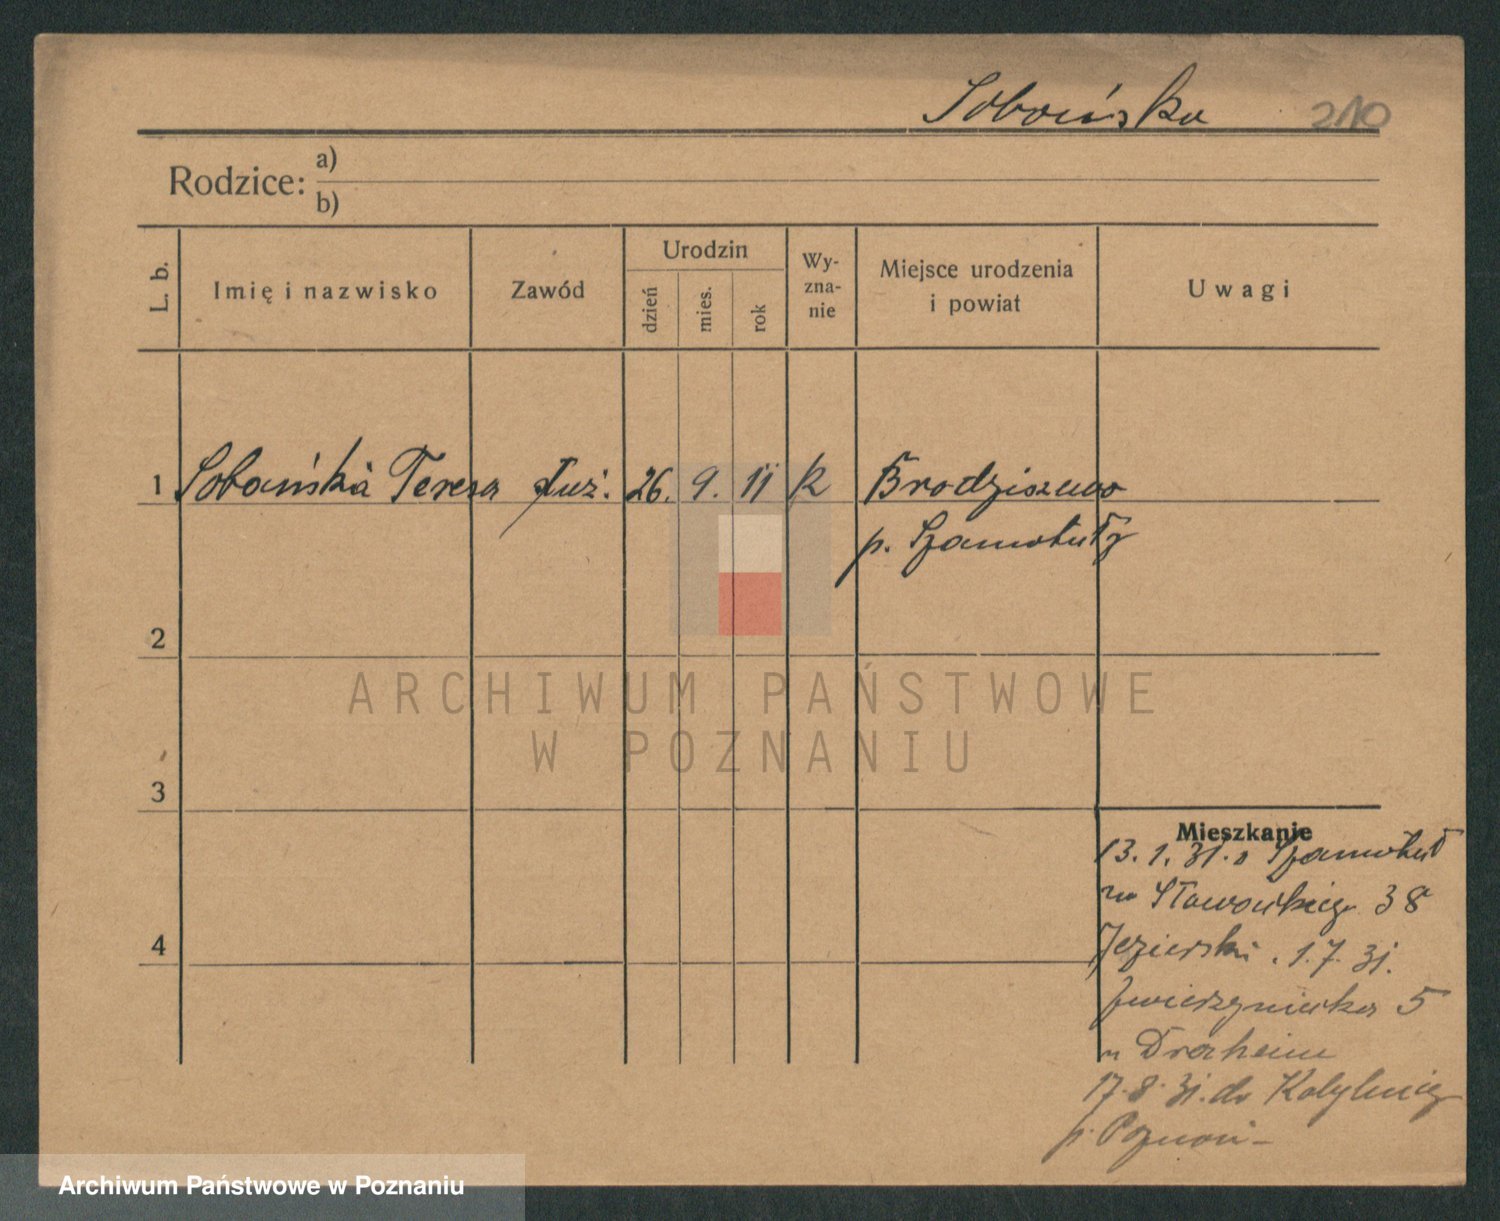 Sobańska 210
Rodzice: a)
b)
L. b.
Imię i nazwisko
Zawód
Urodzin
dzień
mies.
rok
Wy-
zna-
nie
Miejsce urodzenia
i powiat
Uwagi
1 Sobańska Teresa służ. 26. 9. 11 k Brodziszewo
p. Szamotuły
2
3
4
Mieszkanie
13. 1. 31. Szamotuł
38
Jezierski. 1. 7. 31.
Zwierzyniecka 5
u Draheim
17. 8. 31. do Kobylnicy
p. Poznań
ARCHIWUM PAŃSTWOWE
W POZNANIU
Archiwum Państwowe w Poznaniu